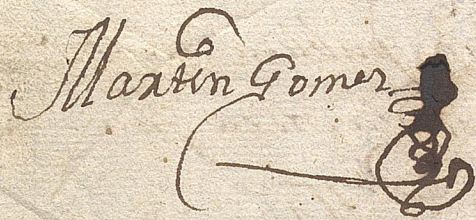 Martin Gomez